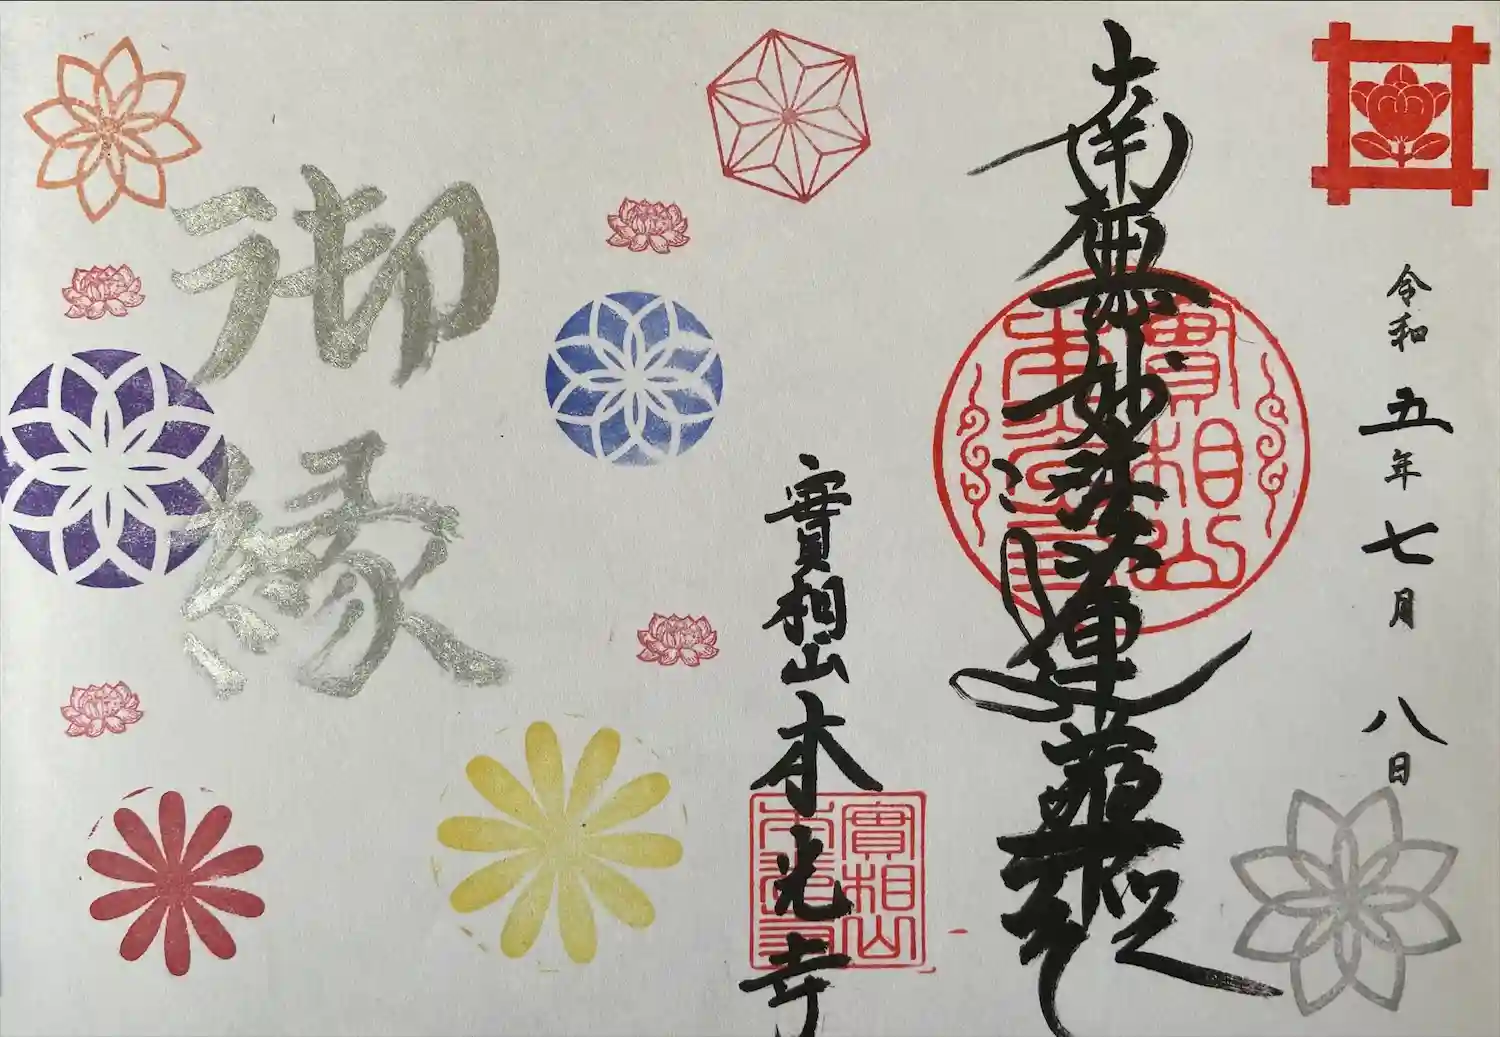 令和五年七月八日
南無妙法蓮華経
實相山
實相山本光寺
實相山
御縁